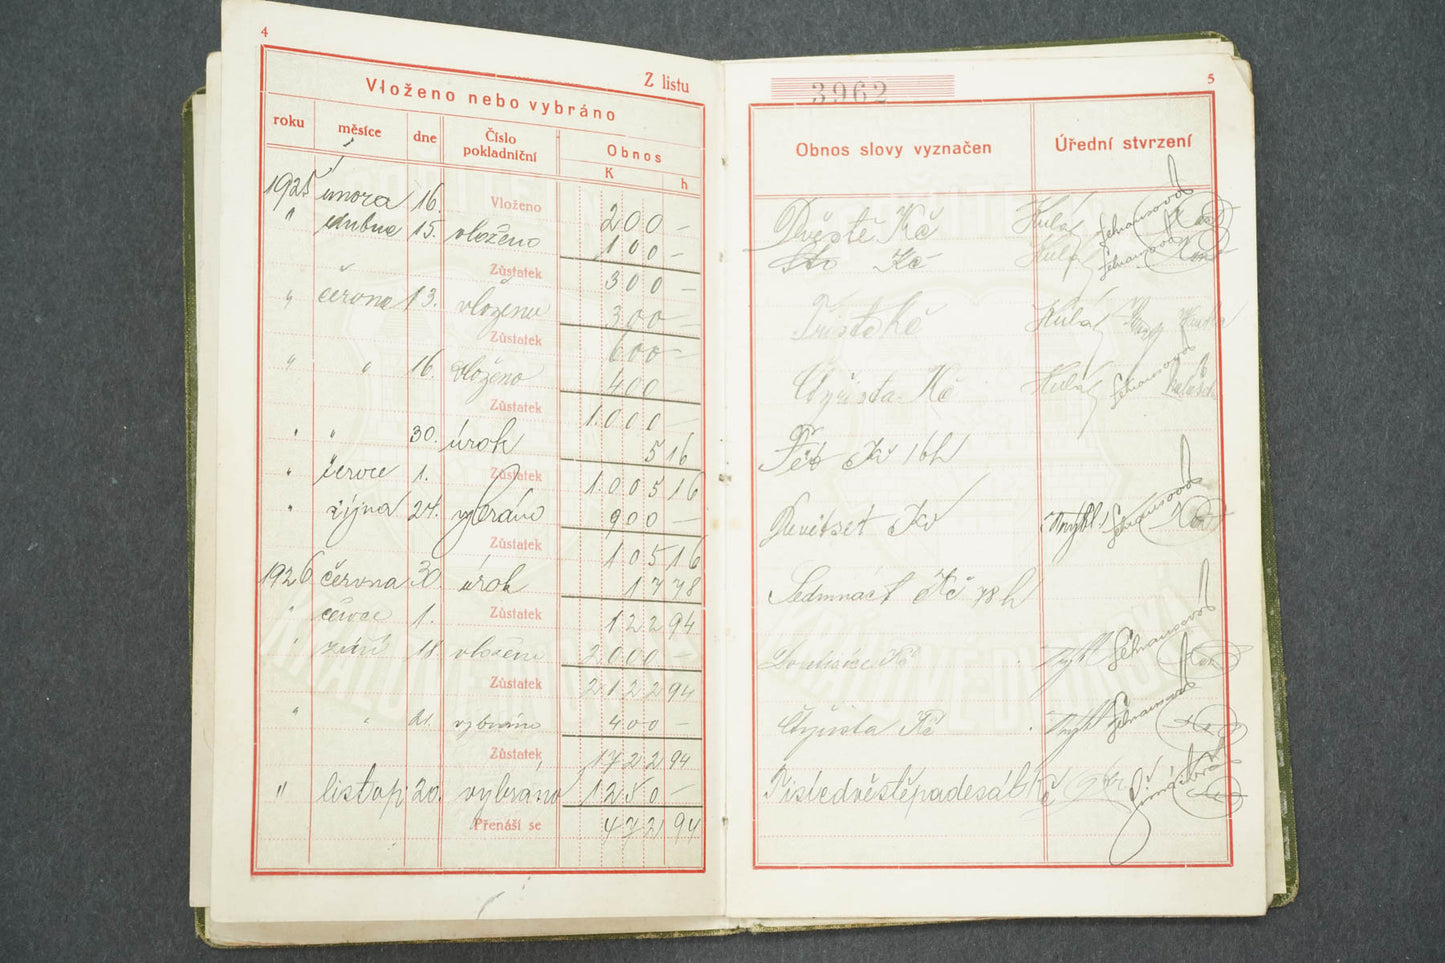 4
Z listu
Vloženo nebo vybráno
roku měsíce dne Číslo pokladniční Obnos
K h
1925 února 16. Vloženo 200 –
" dubna 15. vloženo 100 –
Zůstatek 300 –
" června 13. vloženo 300 –
Zůstatek 600 –
" " 16. vloženo 400 –
Zůstatek 1.000 –
" " 30. úrok 5 16
" července 1. Zůstatek 1.005 16
" října 24. vybráno 900 –
Zůstatek 105 16
1926 června 30. úrok 17 78
" července 1. Zůstatek 122 94
" září 18. vloženo 2000 –
Zůstatek 2122 94
" " 21. vybráno 400 –
Zůstatek 1722 94
" listop 20. vybráno 1250 –
Přenáší se 472 94
3962
5
Obnos slovy vyznačen Úřední stvrzení
Dvěstě Kč Hulá
Sto Kč Hulá
Třista Kč Hulá
Čtyřista Kč Hulá
Pět Kč 16 h
Devětset Kč
Sedmnáct Kč 78 h
Dvatisíce Kč
Čtyřista Kč
Tisícdvěstěpadesát Kč